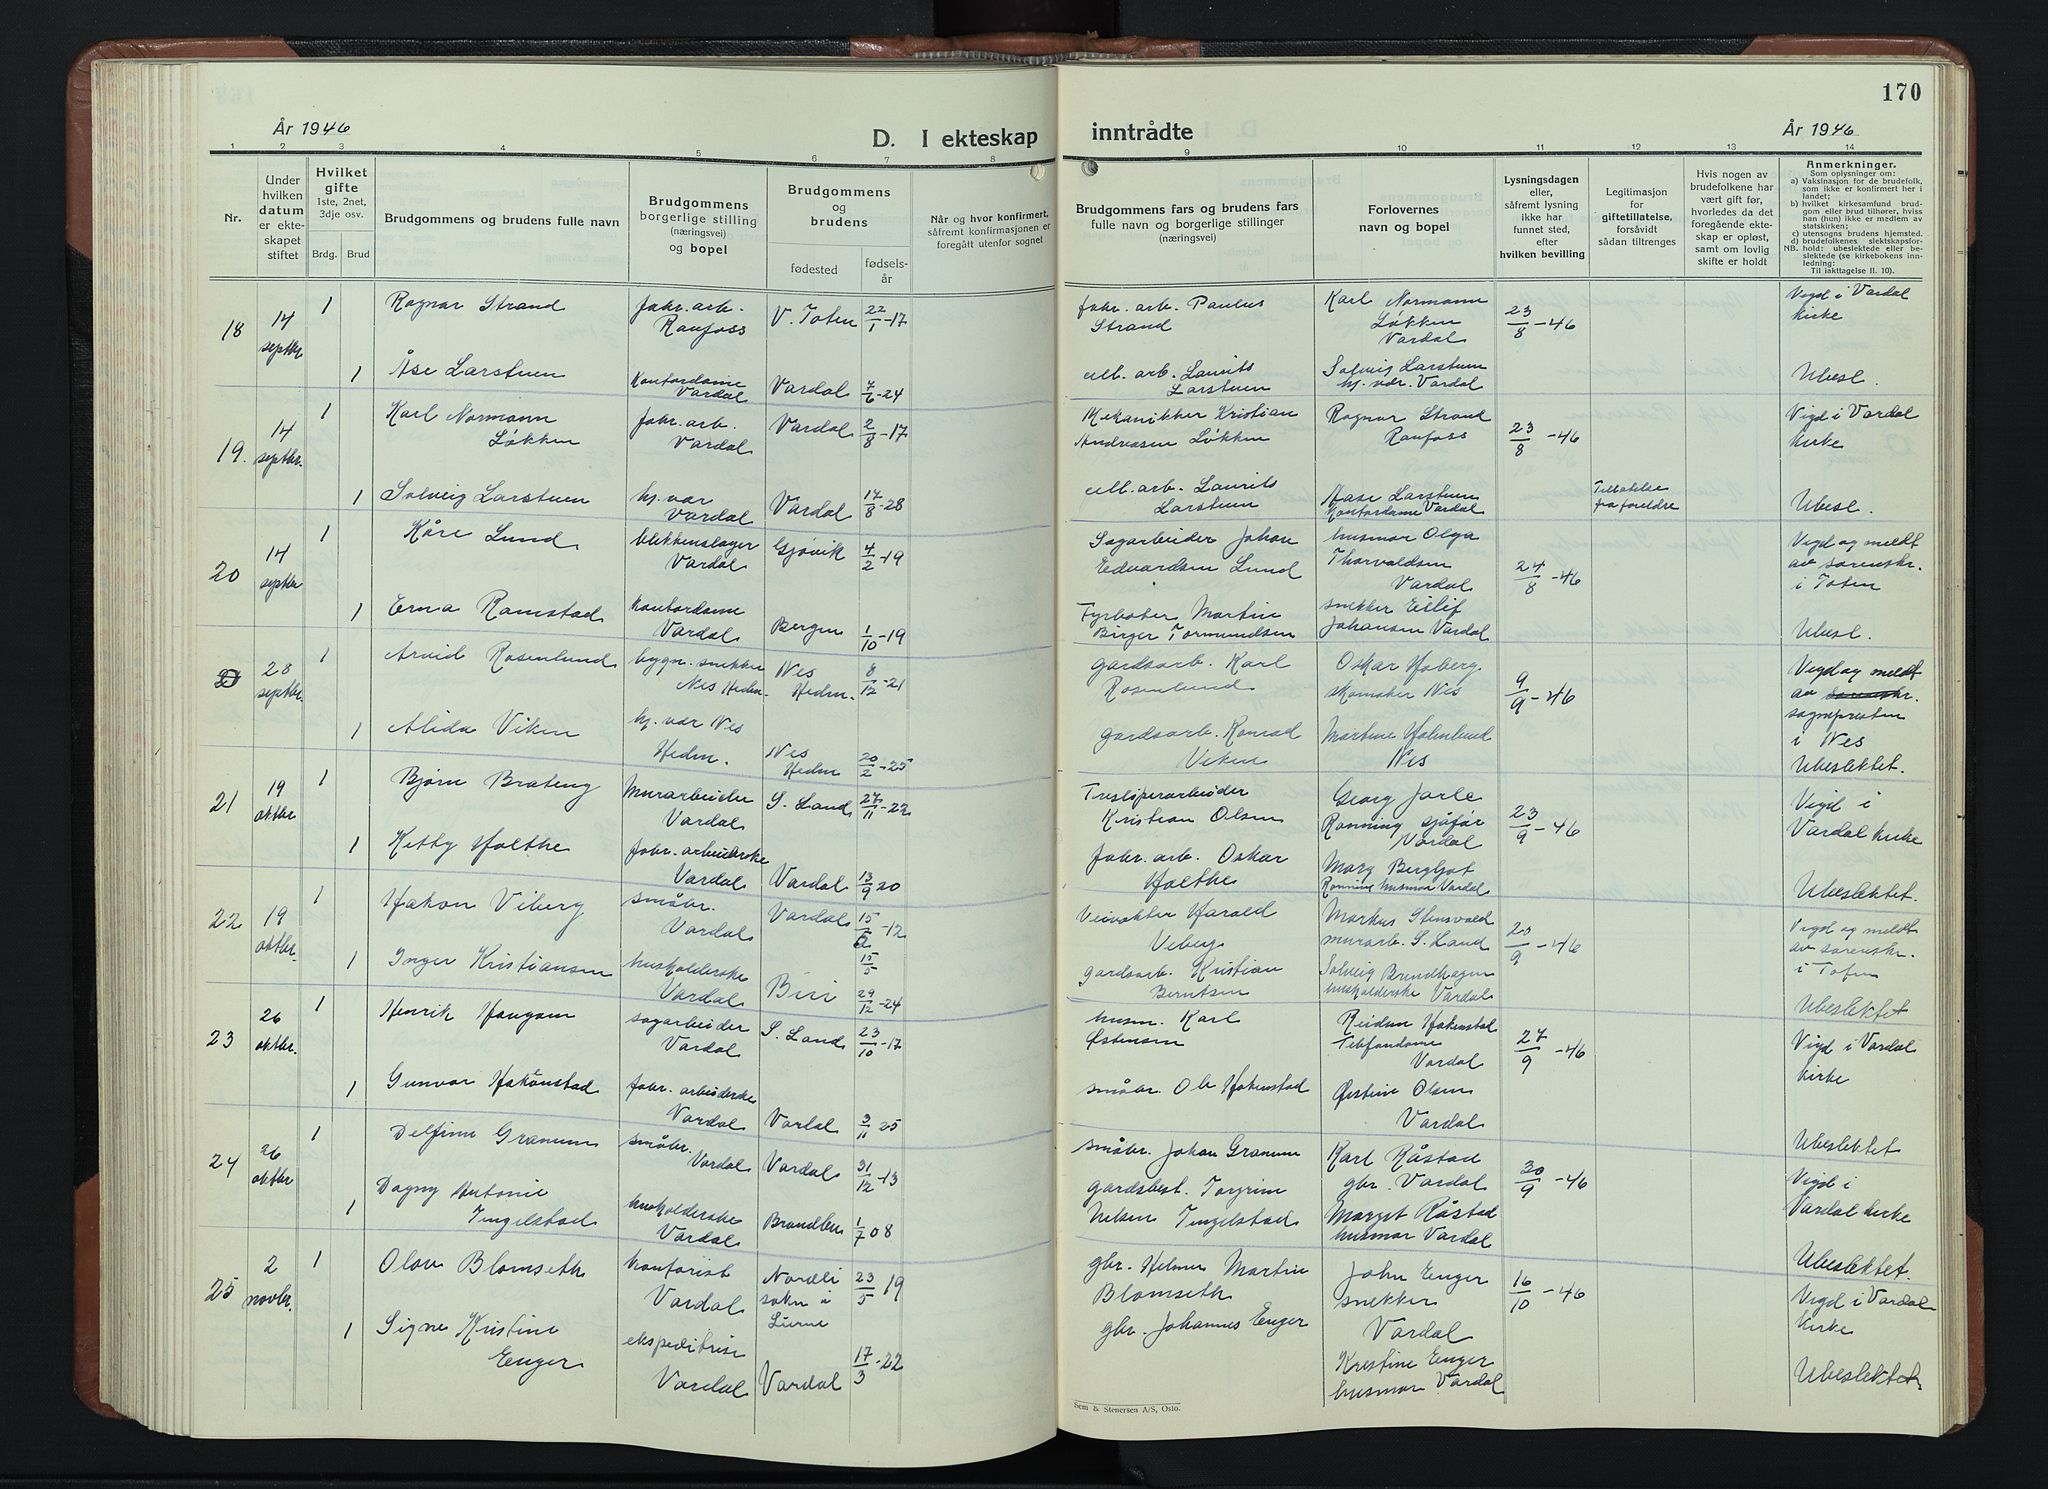 170
År 1946
D. I ekteskap inntrådte
År 1946
1 2 3 4 5 6 7 8 9 10 11 12 13 14
Nr.
Under
hvilken
datum
er ekte-
skapet
stiftet
Hvilket
gifte
1ste, 2net,
3dje osv.
Brdg. Brud
Brudgommens og brudens fulle navn
Brudgommens
borgerlige stilling
(næringsvei)
og bopel
Brudgommens
og
brudens
fødested
fødsels-
år
Når og hvor konfirmert,
såfremt konfirmasjonen er
foregått utenfor sognet
Brudgommens fars og brudens fars
fulle navn og borgerlige stillinger
(næringsvei)
Forlovernes
navn og bopel
Lysningsdagen
eller,
såfremt lysning
ikke har
funnet sted,
efter
hvilken bevilling
Legitimasjon
for
giftetillatelse,
forsåvidt
sådan tiltrenges
Hvis nogen av
brudefolkene har
vært gift før,
hvorledes da det
foregående ekte-
skap er opløst,
samt om lovlig
skifte er holdt
Anmerkninger.
Som oplysninger om:
a) Vaksinasjon for de brudefolk,
som ikke er konfirmert her i
landet;
b) hvilket kirkesamfund brud-
gom eller brud tilhører, hviss
han (hun) ikke er medlem av
statskirken;
c) utensogns brudens hjemsted.
d) brudefolkenes slektskapsfor-
NB. hold: ubeslektede eller be-
slektede (se kirkebokens inn-
ledning:
Til iakttagelse II. 10).
18 14 septbr 1 Ragnar Strand fabr. arb. Raufoss V. Toten 22/1-17
fabr. arb. Paulus Strand Karl Normann Løkken Vardal 23/8-46 Vigd i Vardal kirke
1 Åse Larstuen Kontordame Vardal Vardal 7/6-24
cell. arb. Laurits Larstuen Solveig Larstuen hj. vær. Vardal Ubesl.
19. 14 septbr. 1 Karl Normann Løkken fabr. arb. Vardal Vardal 2/8-17
Mekanikker Kristian Andreasen Løkken Ragnar Strand Raufoss 23/8-46 Vigd i Vardal kirke
1 Solveig Larstuen hj. vær Vardal Vardal 17/8-28
cell. arb. Laurits Larstuen Aase Larstuen Kontordame Vardal Tillatelse fra foreldre Ubesl.
20 14 septbr 1 Kåre Lund blikkenslager Vardal Gjøvik 4/2-19
Sagarbeider Johan Edvardsen Lund husmor Olga Thorvaldsen Vardal 24/8-46 Vigd og meldt av sorenskr. i Toten
1 Erna Ramstad Kontordame Vardal Bergen 1/10-19
Fyrbøter Martin Birger Tormundsen snekker Eilif Johansen Vardal Ubesl.
28 septbr. 1 Arvid Rosenlund bygn. snekker Nes Hedm. Nes Hedm. 8/12-21
gardsarb. Karl Rosenlund Oskar Hoberg skomaker Nes 9/9-46 Vigd og meldt av sorenskr. sognepresten i Nes
1 Alida Viken hj. vær Nes Hedm. Nes Hedm 20/2-25
gardsarb. Konrad Viken Martine Holmlund Nes Ubeslektet.
21 19 oktbr 1 Bjørn Brateng Murarbeider Vardal S. Land 27/11-22
Tresliperarbeider Kristian Olsen Georg Jarle Rønning sjåfør Vardal 23/9-46 Vigd i Vardal kirke
1 Kitty Holthe fabr. arbeiderske Vardal Vardal 13/9 20
fabr. arb. Oskar Holthe Mary Bergljot Rønning husmor Vardal Ubeslektet.
22 19 oktbr. 1 Håkon Viberg småbr. Vardal Vardal 15/5-12
15/5
Veivokter Harald Viberg Markus Stensvald murarb. S. Land 20/9-46 Vigd og meldt av sorenskr. i Toten
1 Inger Kristiansen husholderske Vardal Biri 29/12-24
gardsarb. Kristian Berntsen Solveig Brundhagen husholderske Vardal Ubeslektet
23 26 oktbr. 1 Henrik Haugom sagarbeider Vardal S. Land 23/10-17
husm. Karl Østensen Reidun Håkenstad Telefondame Vardal 27/9-46 Vigd i Vardal kirke
1 Gunvor Håkonstad fabr. arbeiderske Vardal Vardal 3/11 25
småbr. Ole Håkenstad Østine Olsen Vardal Ubeslektet
24 26 oktbr 1 Delfine Granum småbr. Vardal Vardal 31/12-13
småbr. Johan Granum Karl Råstad gbr. Vardal 30/9-46 Vigd i Vardal kirke
1 Dagny Antonie Tingelstad husholderske Vardal Brandbu 1/7 08
gardsbest. Torgrim Nielsen Tingelstad Margit Råstad husmor Vardal Ubeslektet.
25 2 novbr. 1 Olav Blomseth kontorist Vardal Nordli sokn i Lierne 23/5 19
gbr. Helmer Martin Blomseth John Enger snekker Vardal 16/10-46 Vigd i Vardal kirke
1 Signe Kristine Enger ekspeditrise Vardal Vardal 17/3-22
gbr. Johannes Enger Kristine Enger husmor Vardal Ubeslektet
Sem & Stenersen A/S, Oslo.